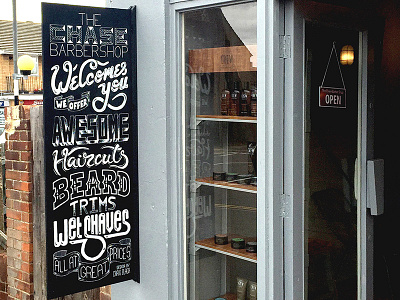 THE
CHASE
BARBERSHOP
Welcomes
you
WE OFFER
AWESOME
Haircuts
BEARD
TRIMS
Wet Shaves
ALL AT GREAT PRICES
OPEN